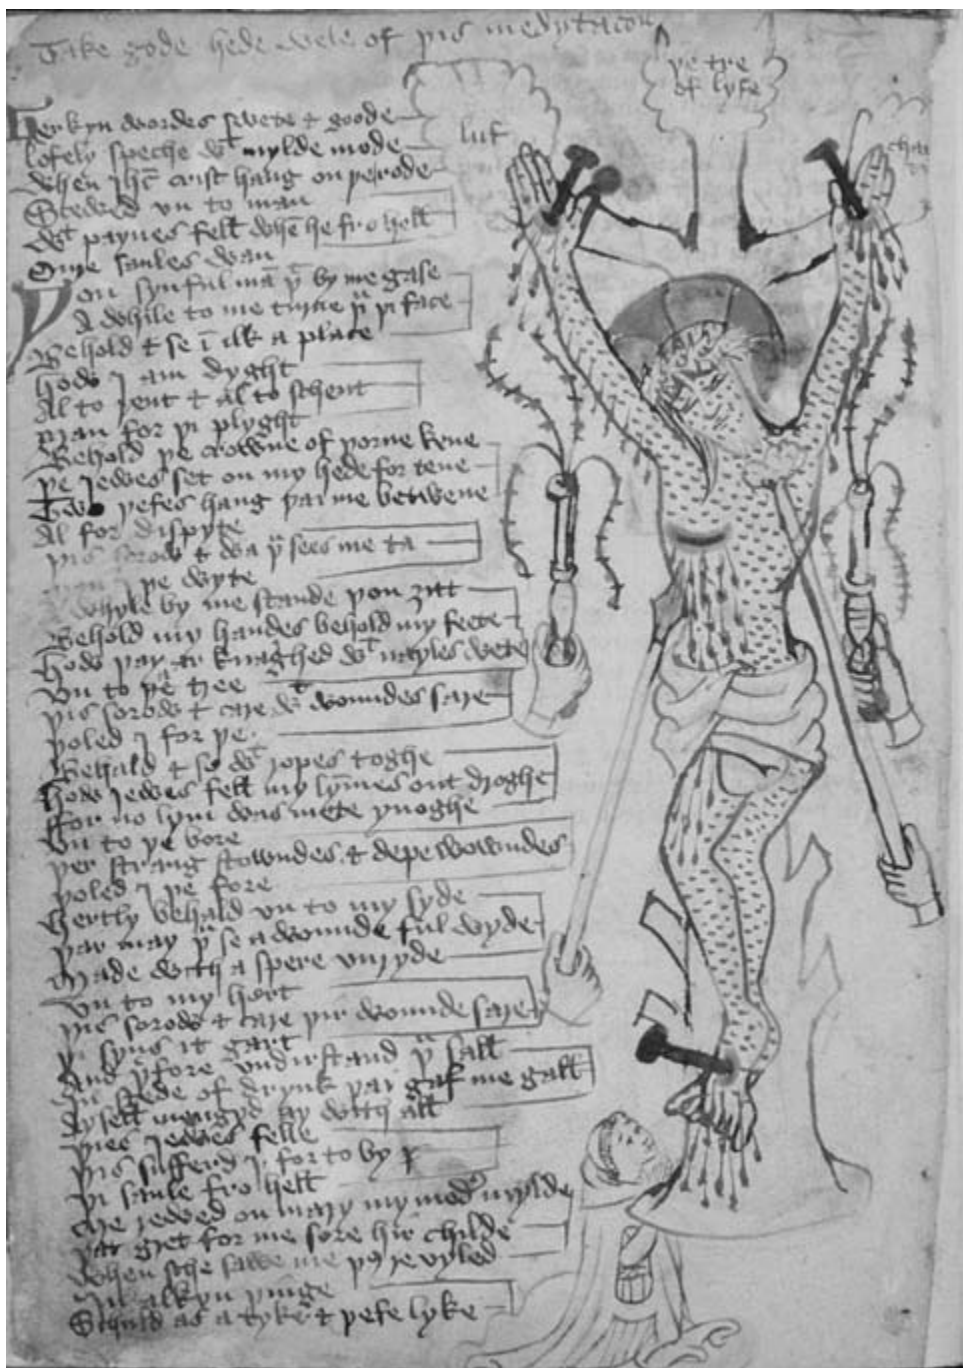 Take gode hede wele of þis medytacoun
þe tre
of lyfe
luf
Herkyn wordes swete & goode
lofely speche wt mylde mode
When Jhc crist hang on þe rode
Schewed vn to man
wt paynes fell when he fro hell
Oure saules wan
Þou synful man þt by me gase
A while to me turne þu þi face
Behold & se in ilk a place
how I am dyght
Al to rent & al to schent
man for þi plyght
Behold þe crowne of þorne kene
þe jewes set on my hede for tene
Two þefes hang þai me betwene
Al for dispyte
þis sorow & wa þt sees me ta
þe wyte
whyle by me stande þou zitt
Behold my handes behold my feete
how þay ar knaghed wt nayles wete
vn to þe tree
þis sorow & care wt woundes sare
þoled I for þe
Behald & se wt ropes toghe
how jewes fell my lymes out droghe
ffor no lym was mete ynoghe
vn to þe bore
þer strang stowndes & depe wowndes
þoled I þe fore
hertly behald vn to my syde
þar may þu se a wounde ful wyde
Made with a spere vnryde
vn to my hert
þis sorow & care þir wounde sare
þi syns it gart
And þrfore vndirstand þu sall
In stede of drynk þai gaf me gall
Aysell mengyd þay with all
þies jewes felle
þis sufferd I for to by þe
þi saule fro hell
rewed on mary my moder mylde
þat gret for me sore hir childe
When sche sawe me þus revyled
In alkyn þinge
Schuld as a tyke & þefe lyke